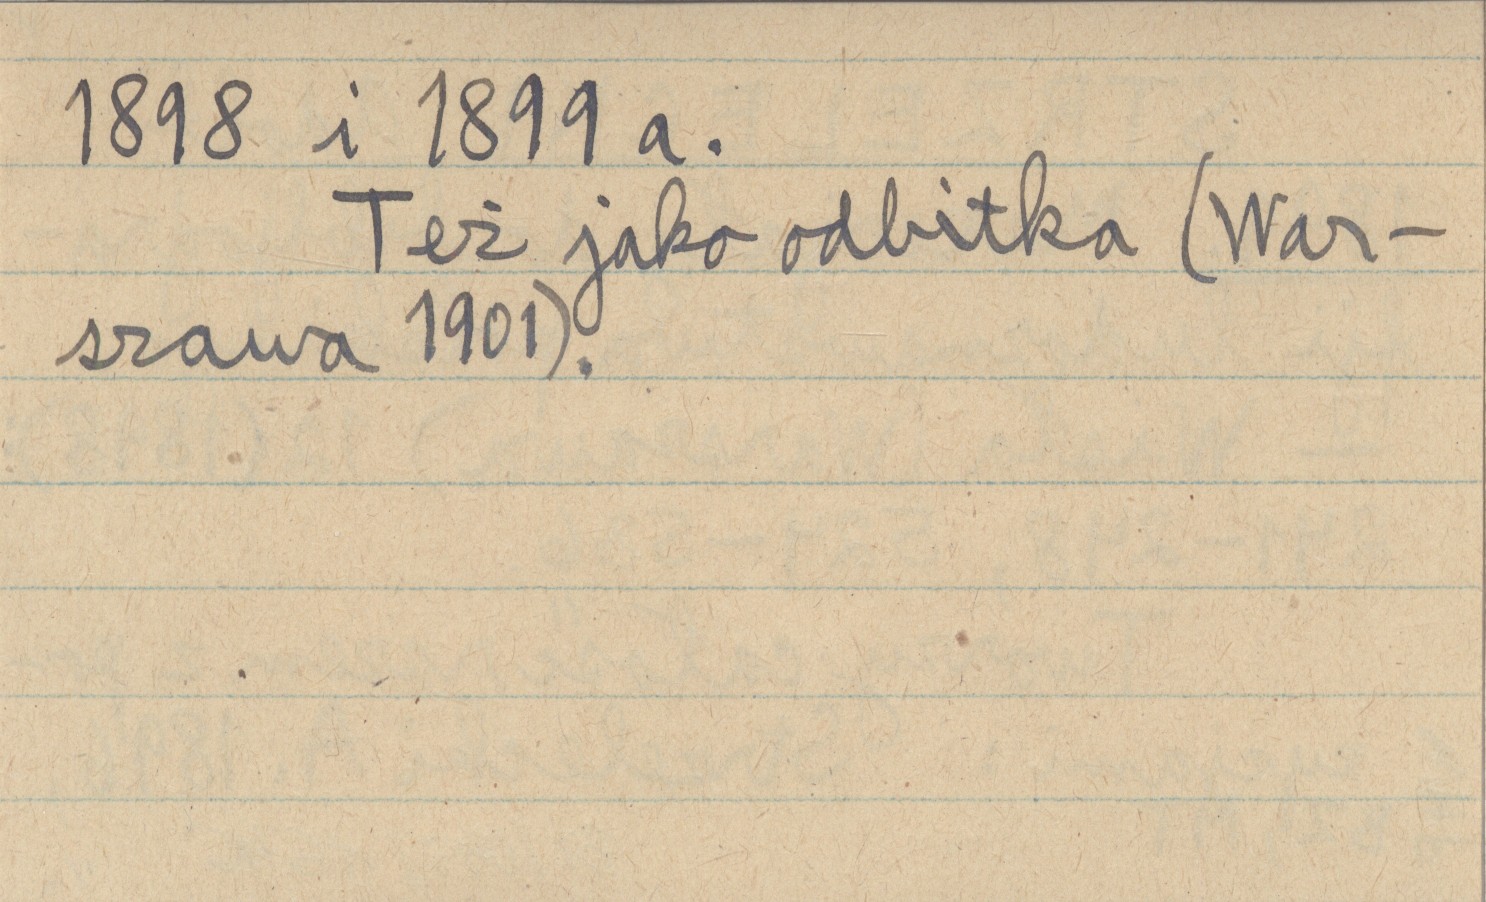 1898 i 1899 a.
Też jako odbitka (War-
szawa 1901).